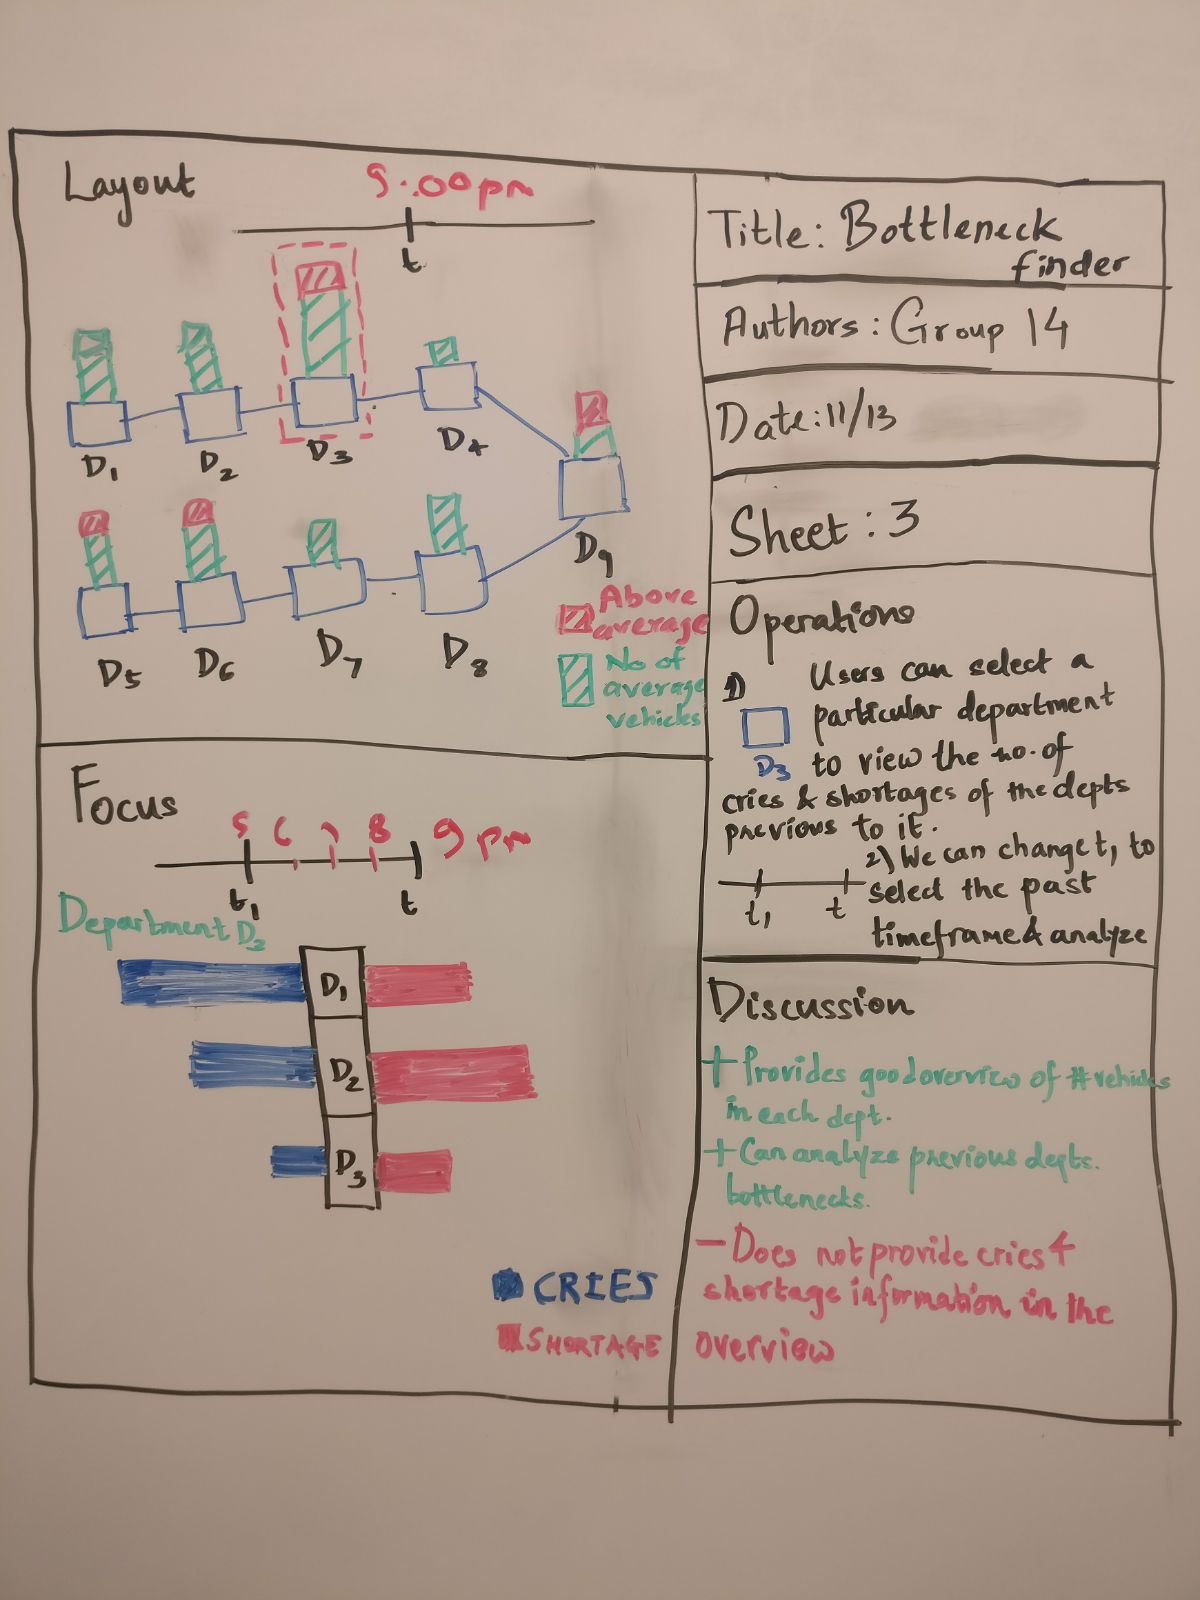 Layout
9:00pm
t
D1
D2
D3
D4
D9
D5
D6
D7
D8
Above
average
No of
average
vehicles
Focus
5 6 7 8 9 pm
t1 t
Department D2
D1
D2
D3
CRIES
SHORTAGE
Title: Bottleneck
finder
Authors: Group 14
Date: 11/13
Sheet: 3
Operations
1) Users can select a
particular department
D3 to view the no. of
cries & shortages of the depts
previous to it.
2) We can change t1 to
t1 t select the past
timeframe & analyze
Discussion
+ Provides good overview of # vehicles
in each dept.
+ Can analyze previous depts.
bottlenecks.
- Does not provide cries &
shortage information in the
overview